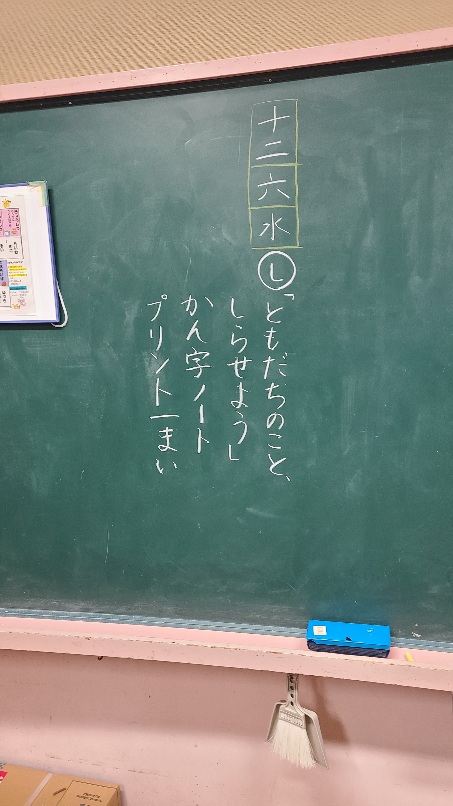 十二
六
水
し
「ともだちのこと、
しらせよう」
かん字ノート
プリント一まい